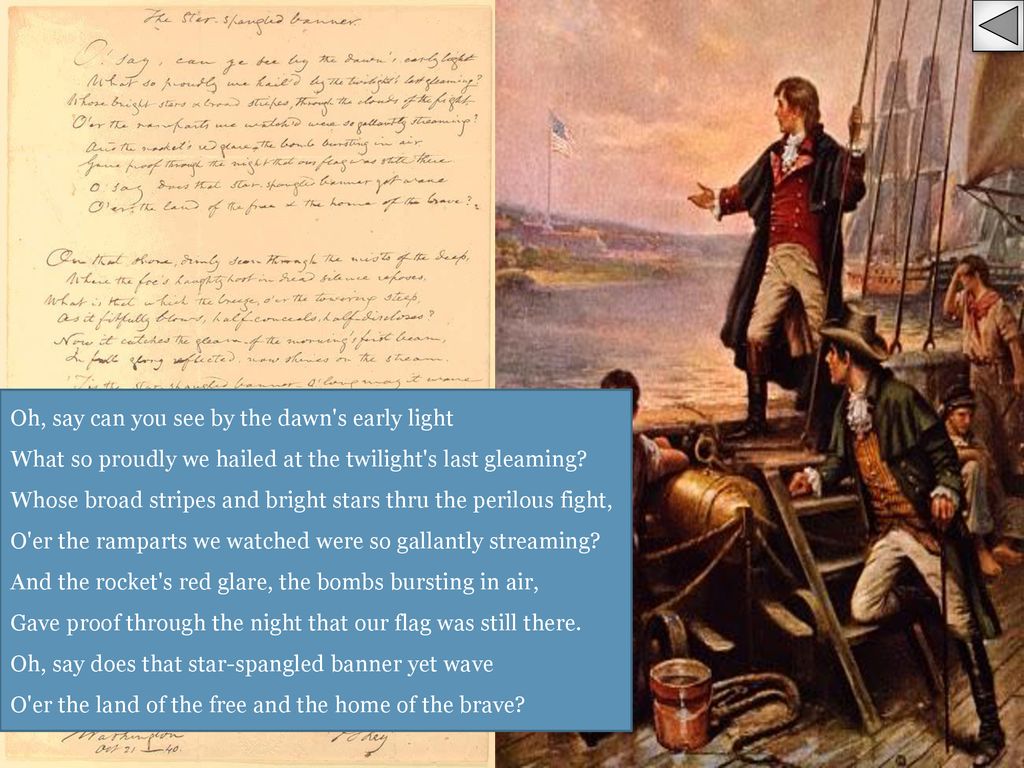 The Star-spangled banner.
O! say, can ye see by the dawn's early light
What so proudly we hail'd by the twilight's last gleaming?
Whose bright stars & broad stripes, through the clouds of the fight
O'er the ramparts we watch'd were so gallantly streaming?
And the rocket's red glare, the bomb bursting in air
Gave proof through the night that our flag was still there
O! say, does that star-spangled banner yet wave
O'er the land of the free & the home of the brave?
On that shore, dimly seen through the mists of the deep,
Where the foe's haughty host in dread silence reposes,
What is that which the breeze, o'er the towering steep,
As it fitfully blows, half-conceals, half-discloses?
Now it catches the gleam of the morning's first beam,
In full glory reflected, now shines on the stream.
'Tis the star-spangled banner O! long may it wave
Oh, say can you see by the dawn's early light
What so proudly we hailed at the twilight's last gleaming?
Whose broad stripes and bright stars thru the perilous fight,
O'er the ramparts we watched were so gallantly streaming?
And the rocket's red glare, the bombs bursting in air,
Gave proof through the night that our flag was still there.
Oh, say does that star-spangled banner yet wave
O'er the land of the free and the home of the brave?
Washington
Oct 21 – 40.
Key